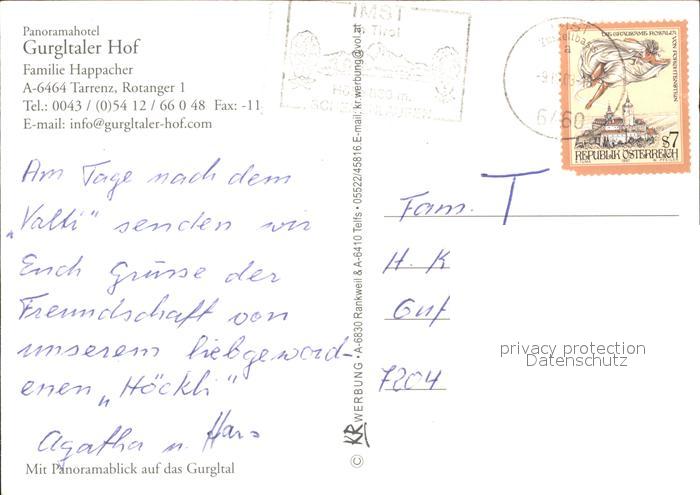 Panoramahotel
Gurgltaler Hof
Familie Happacher
A-6464 Tarrenz, Rotanger 1
Tel.: 0043 / (0)54 12 / 66 0 48 Fax: -11
E-mail: info@gurgltaler-hof.com
Am Tage nach dem
„Valti" senden wir
Euch Grüsse der
Freundschaft von
unserem liebgeword-
enen „Höckli"
Agatha u. Hans
Mit Panoramablick auf das Gurgltal
© KR WERBUNG • A-6830 Rankweil & A-6410 Telfs • 05522/45816 E-mail: kr.werbung@vol.at
IMST
in Tirol
6460
DIE GRAUSAME ROSALIA
VON FORCHTENSTEIN
S7
REPUBLIK ÖSTERREICH
Fam. T
H. K
7204
privacy protection
Datenschutz